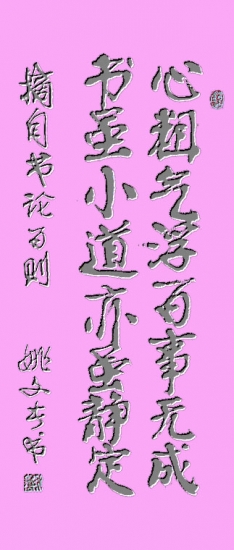 心粗气浮百事无成
书小道亦静定
摘自书论百则
姚文书